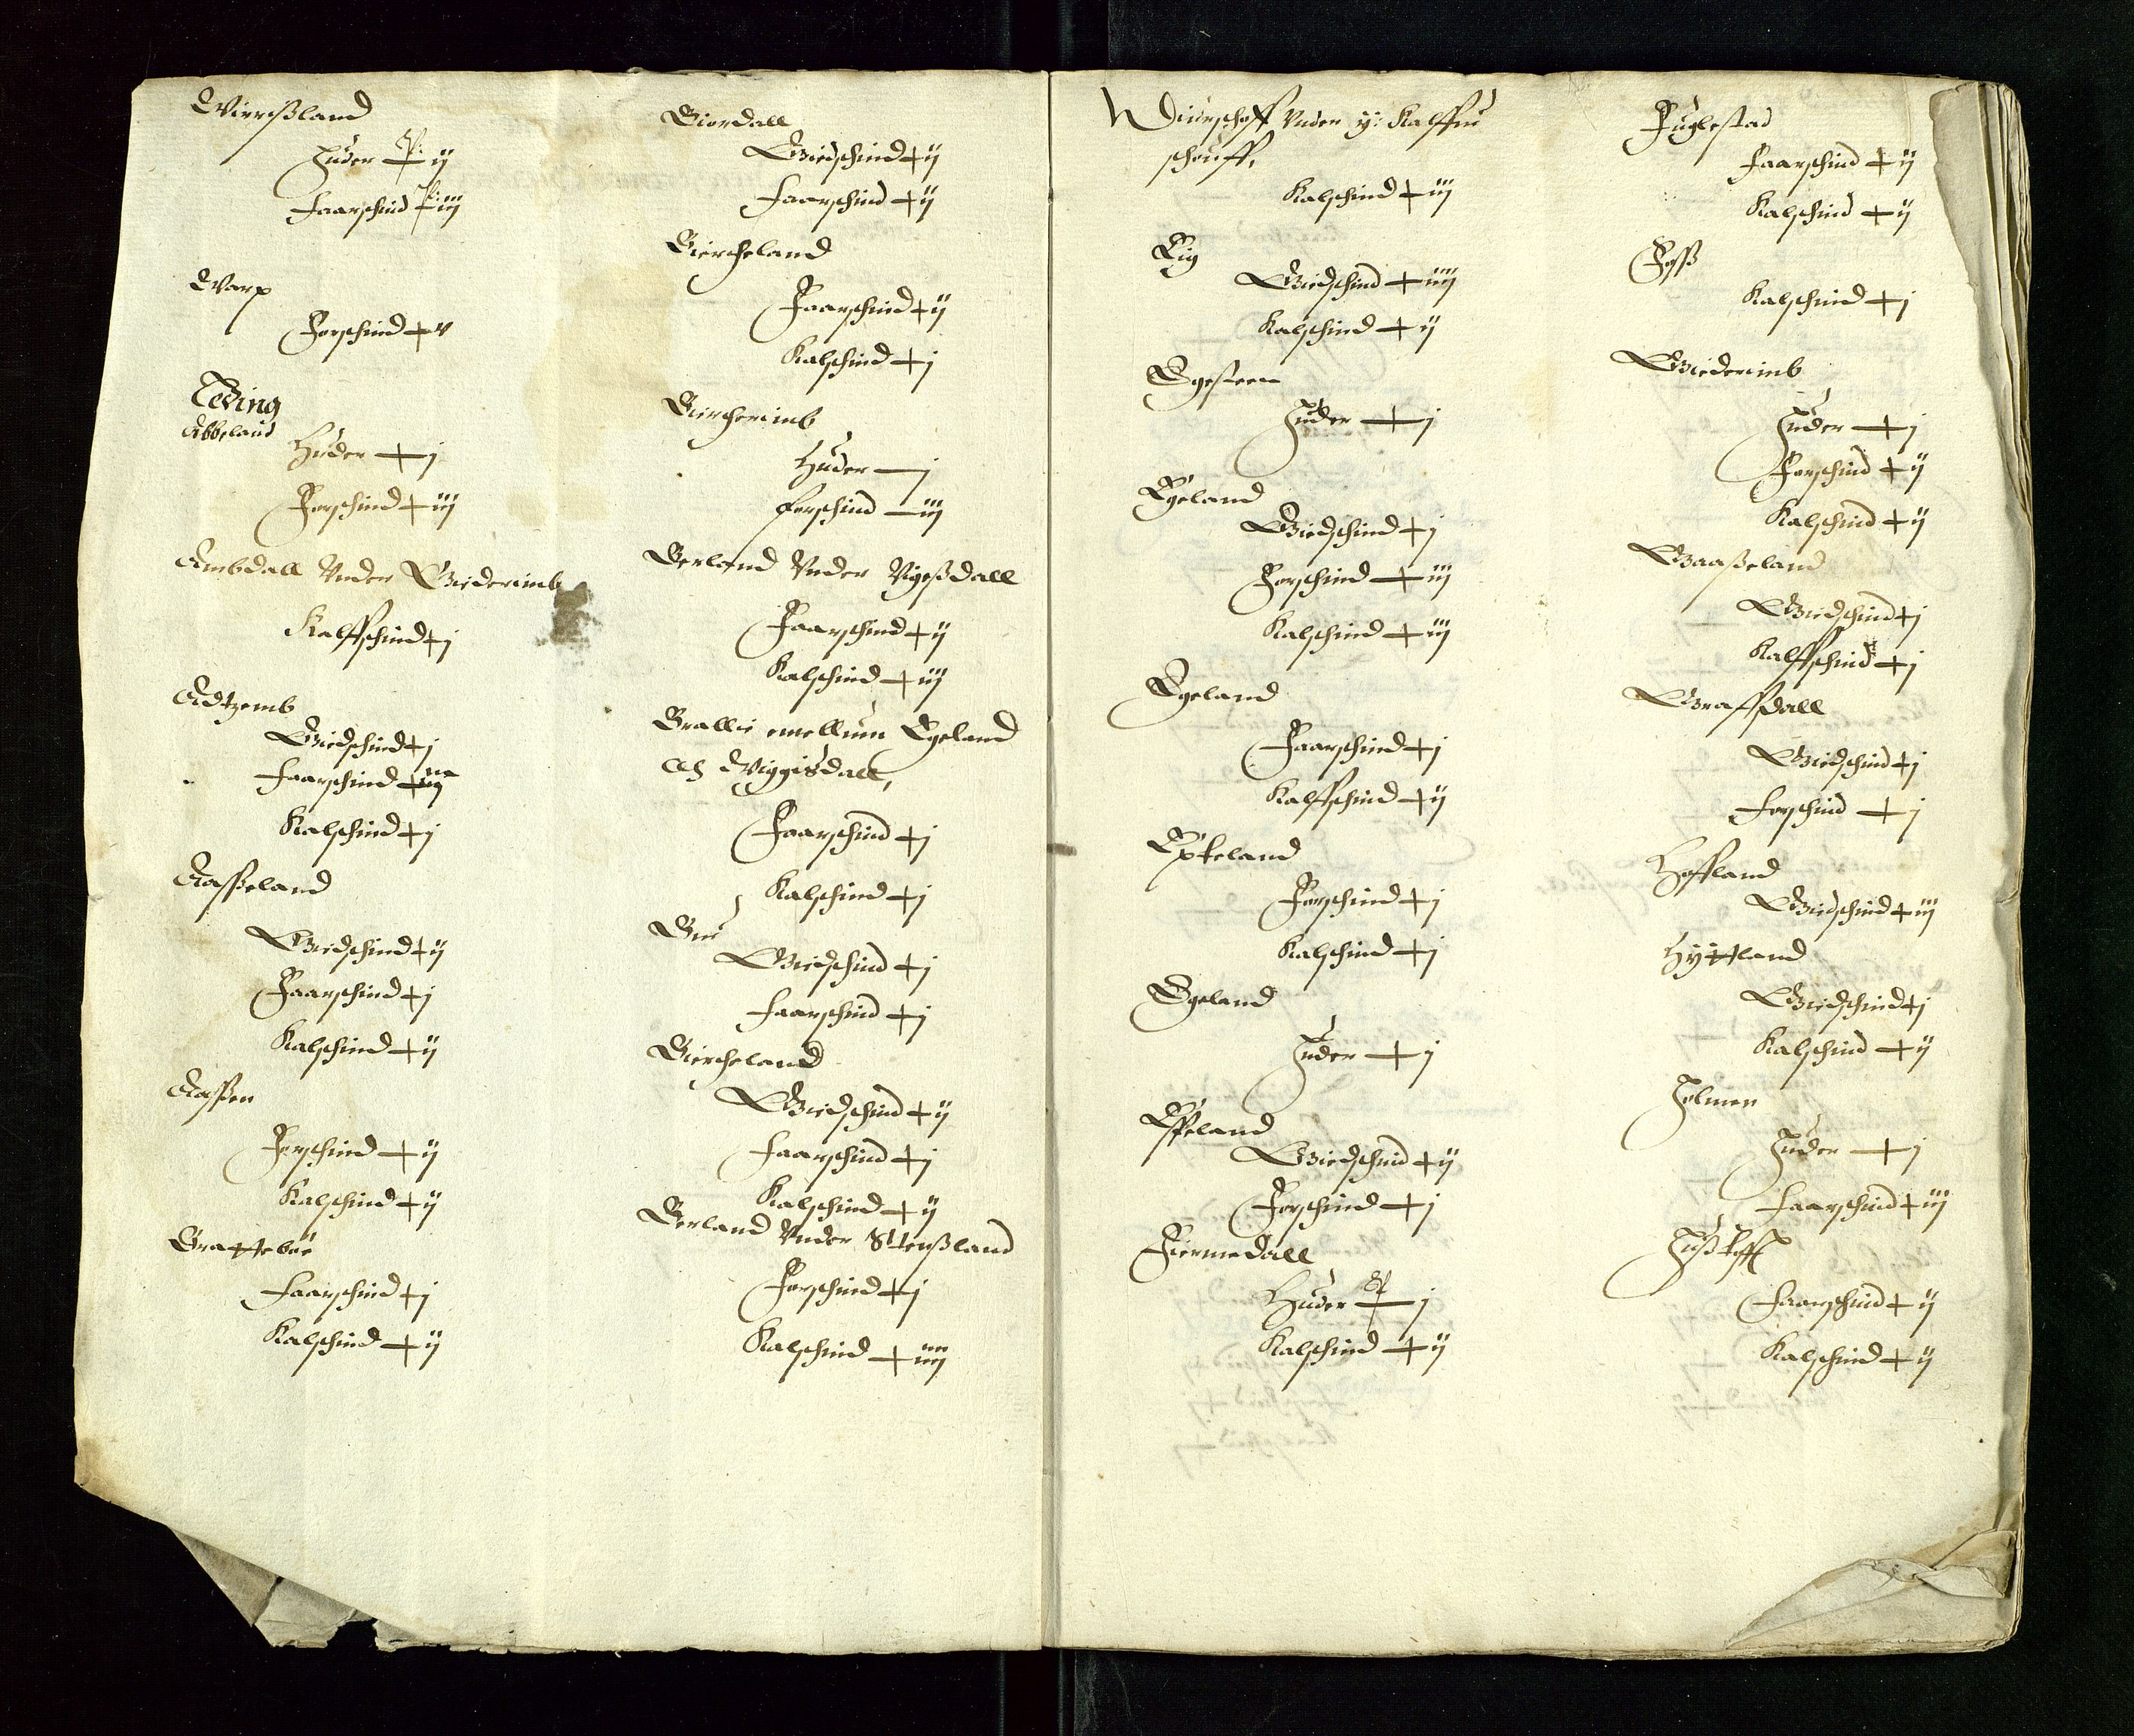 Wierßland
Huder + ij
Faarschind + iij
Warp
Forschind + v
Abbeland
Huder + j
Forschind + iij
Ambdall Vnder Giederimb
Kalffschind + j
Adtzemb
Giedschind + j
Faarschind
Kalschind + j
Aasseland
Giedschind + ij
Faarschind + j
Kalschind + ij
Aassen
Forschind + ij
Kalschind + ij
Brattebøe
Faarschind + j
Kalschind + ij
Biordall
Giedschind + ij
Faarschind + ij
Biercheland
Faarschind + ij
Kalschind + j
Bircherimb
Huder – j
Forschind – iij
Berland Vnder Vigeßdall
Faarschind + ij
Kalschind + iij
Brallis emellum Egeland
och Viggisdall,
Faarschind + j
Kalschind + j
Bue
Giedschind + j
Faarschind + j
Biercheland
Giedschind + ij
Faarschind + j
Kalschind + ij
Berland Vnder Stenßland
Forschind + j
Kalschind + iiij
Vnder
Kalschind + iij
Eig
Giedschind + iiij
Kalschind + ij
Egesteen
Huder + j
Egeland
Giedschind + j
Forschind + iij
Kalschind + iij
Egeland
Faarschind + j
Kalffschind + ij
Epteland
Forschind + j
Kalschind + j
Egeland
Huder + j
Espeland
Giedschind + ij
Forschind + j
Fiermedall
Huder + j
Kalschind + ij
Fuglestad
Faarschind + ij
Kalschind + ij
Foss
Kalschind + j
Giederimb
Huder + j
Forschind + ij
Kalschind + ij
Gaaßeland
Giedschind + j
Kalffschind + j
Graffdall
Giedschind + j
Forschind + j
Hoffland
Giedschind + iij
Hyttland
Giedschind + j
Kalschind + ij
Holmen
Huder + j
Faarschind + iij
Faarschind + ij
Kalschind + ij